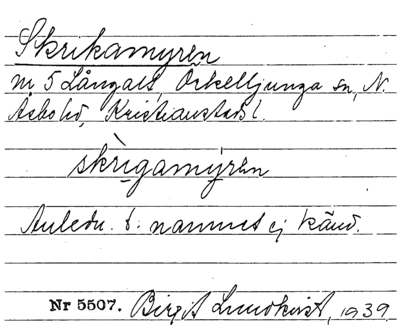 Skrikamyren
nr 5 Långalt, Örkelljunga sn, N.
Åsbo hd, Kristianstads l.
skrìgamýren
Anledn. t. namnet ej känd.
Nr 5507. Birgit Lundkvist, 1939